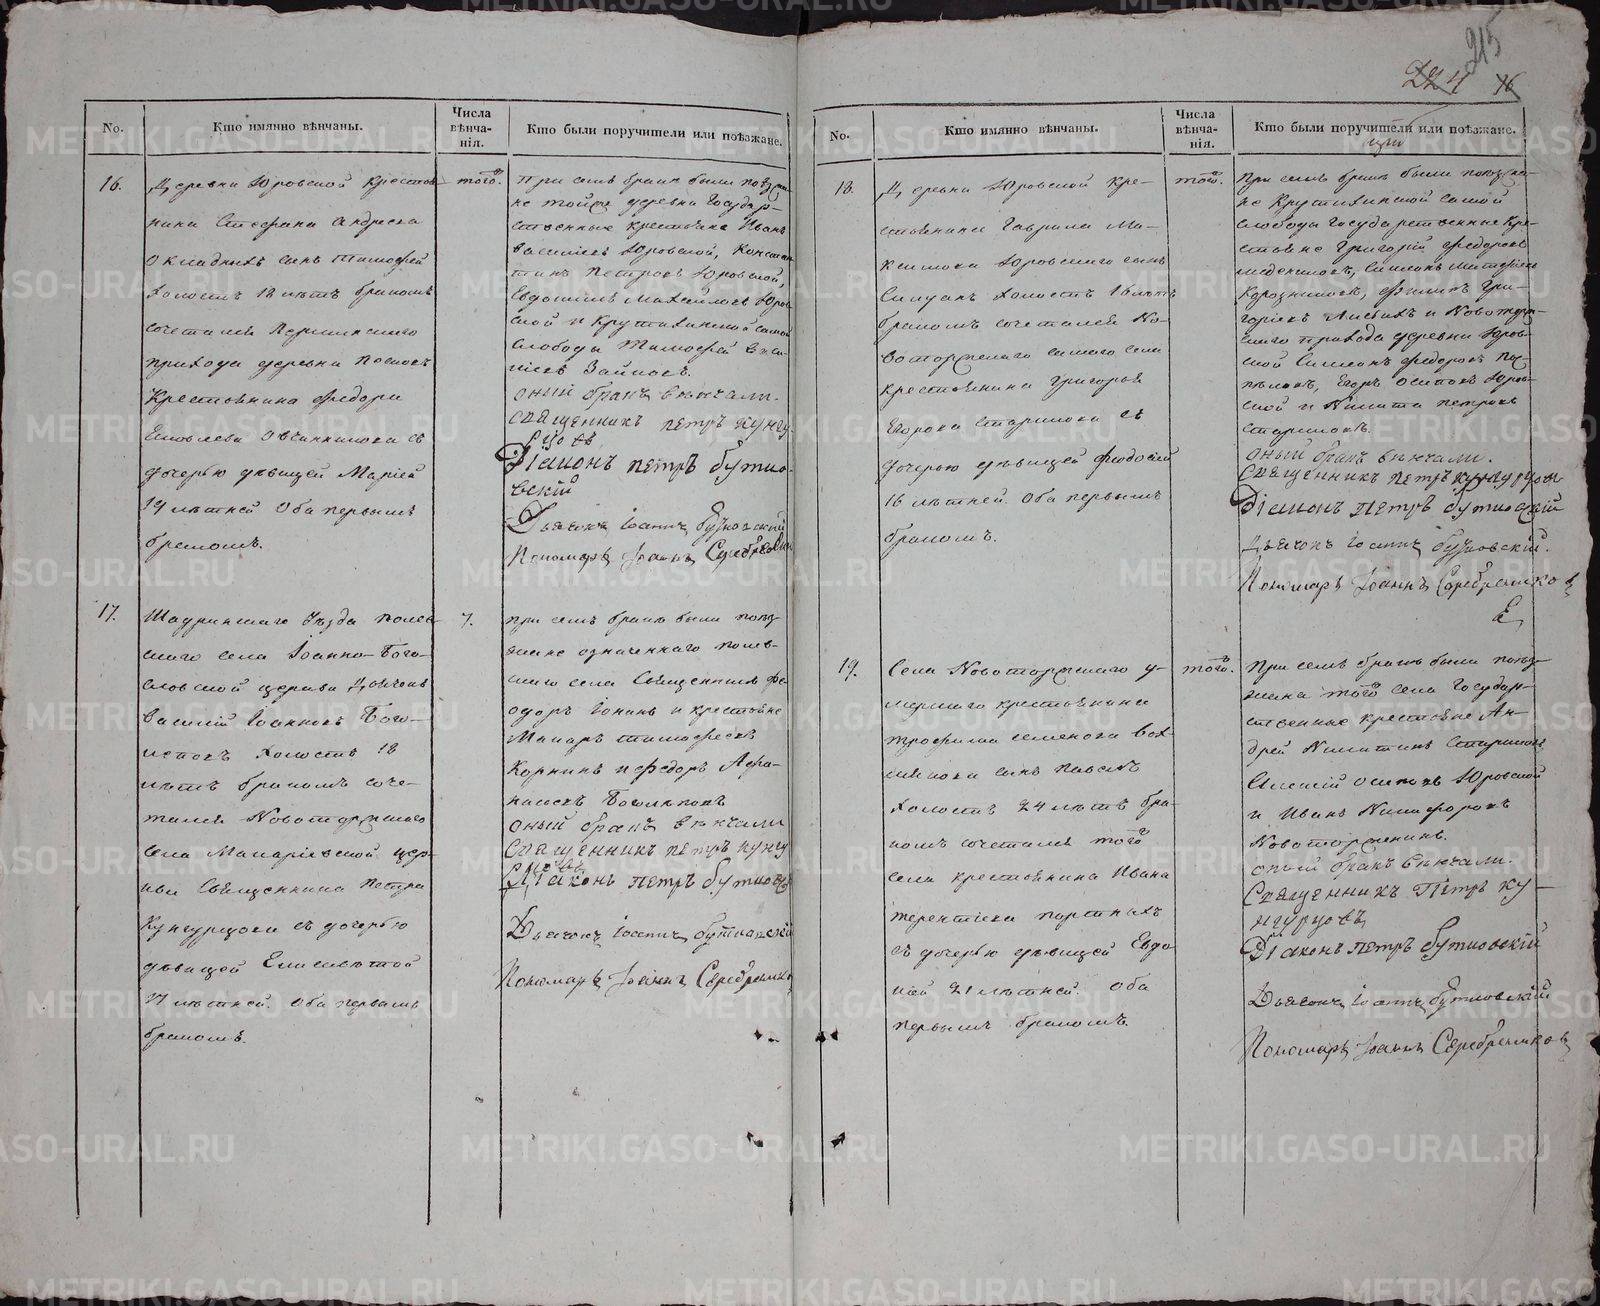 215
224 16
No. Кто имянно вѣнчаны. Числа вѣнчанія. Кто были поручители или поѣзжане.
16. Деревни Юровской крестья-
нина Стефана Андреева
окладныхъ сынъ Тимофей
холостъ 18 лѣтъ бракомъ
сочетался
прихода деревни
Крестьянина Федора
Яковлева Овчинникова съ
дочерью дѣвицей Маріей
19 лѣтней Оба первымъ
бракомъ.
того.
При семъ бракѣ были поѣзжа-
не тойже деревни Государ-
ственные крестьяне Иванъ
Василіевъ Юровской, Констан-
тинъ Петровъ Юровской,
Евдокимъ Михайловъ Юров-
ской и Крутихинской самой
слободы Тимофей
Зайковъ.
оный бракъ вѣнчали.
священникъ петръ кунгу
рцовъ
Діаконъ петръ бутко-
вскій
Дьячокъ Іоаннъ бутковскій
Пономарь Іоаннъ Серебренниковъ
17. Шадринскаго уѣзда полев-
скаго села Іоанно-Бого-
словской церкви Дьячокъ
Василій Іоанновъ Бого-
холостъ 18
лѣтъ бракомъ соче-
тался Новоторжскаго
села Макаріевской цер-
кви Священника Петра
Кунгурцова съ дочерью
дѣвицей Елисаветой
17 лѣтней Оба первымъ
бракомъ.
7.
при семъ бракѣ были поѣз-
жане означеннаго полев-
скаго села Священникъ Фе-
одоръ Іонинъ и крестьяне
Макаръ Тимофеевъ
Коркинъ и Федоръ Афа-
насьевъ
оный бракъ вѣнчали
Священникъ петръ кунгу
рцовъ
Діаконъ петръ бутковск
Дьячокъ Іоаннъ бутковскій
Пономарь Іоаннъ Серебреник
No. Кто имянно вѣнчаны. Числа вѣнчанія. Кто были поручители или поѣзжане.
18. Деревни Юровской кре-
стьянина Гаврила Ма-
ксимова Юровскаго сынъ
Силуанъ холостъ 16 лѣтъ
бракомъ сочетался Но-
воторжскаго самого села
крестьянина Григорья
Егорова Старикова съ
дочерью дѣвицей Феодосіей
16 лѣтней Оба первымъ
бракомъ.
того.
При семъ бракѣ были поѣзжа-
не Крутихинской самой
слободы Государственные Кре-
стьяне Григорій Федоровъ
Симеонъ
Филипъ Гри-
горіевъ и Новоторж-
скаго прихода деревни Юров-
ской Симеонъ Федоровъ
Егоръ Осиповъ Юров-
ской и Никита Петровъ
Стариковъ.
оный бракъ вѣнчали.
Священникъ петръ кунгурцовъ
Діаконъ Петръ бутковскій
Дьячокъ Іоаннъ бутковскій.
Пономарь Іоаннъ Серебрениковъ
19. Села Новоторжскаго у-
мершаго крестьянина
Трофима Семенова
сынъ Павелъ
холостъ 24 лѣтъ бра-
комъ сочетался того
села крестьянина Ивана
Терентіева портныхъ
съ дочерью дѣвицей Евдо-
кіей 21 лѣтней. Оба
первымъ бракомъ.
того.
При семъ бракѣ были поѣз-
жана того села Государ-
ственные крестьяне Ан-
дрей Никитинъ Стариковъ
Алексій Осиповъ Юровской
и Иванъ Никифоровъ
Новоторженинъ.
оный бракъ вѣнчали.
Священникъ Петръ ку-
нгурцовъ
Діаконъ петръ бутковскій
Дьячокъ Іоаннъ бутковскій
Пономарь Іоаннъ Серебрениковъ
METRIKI.GASO-URAL.RU